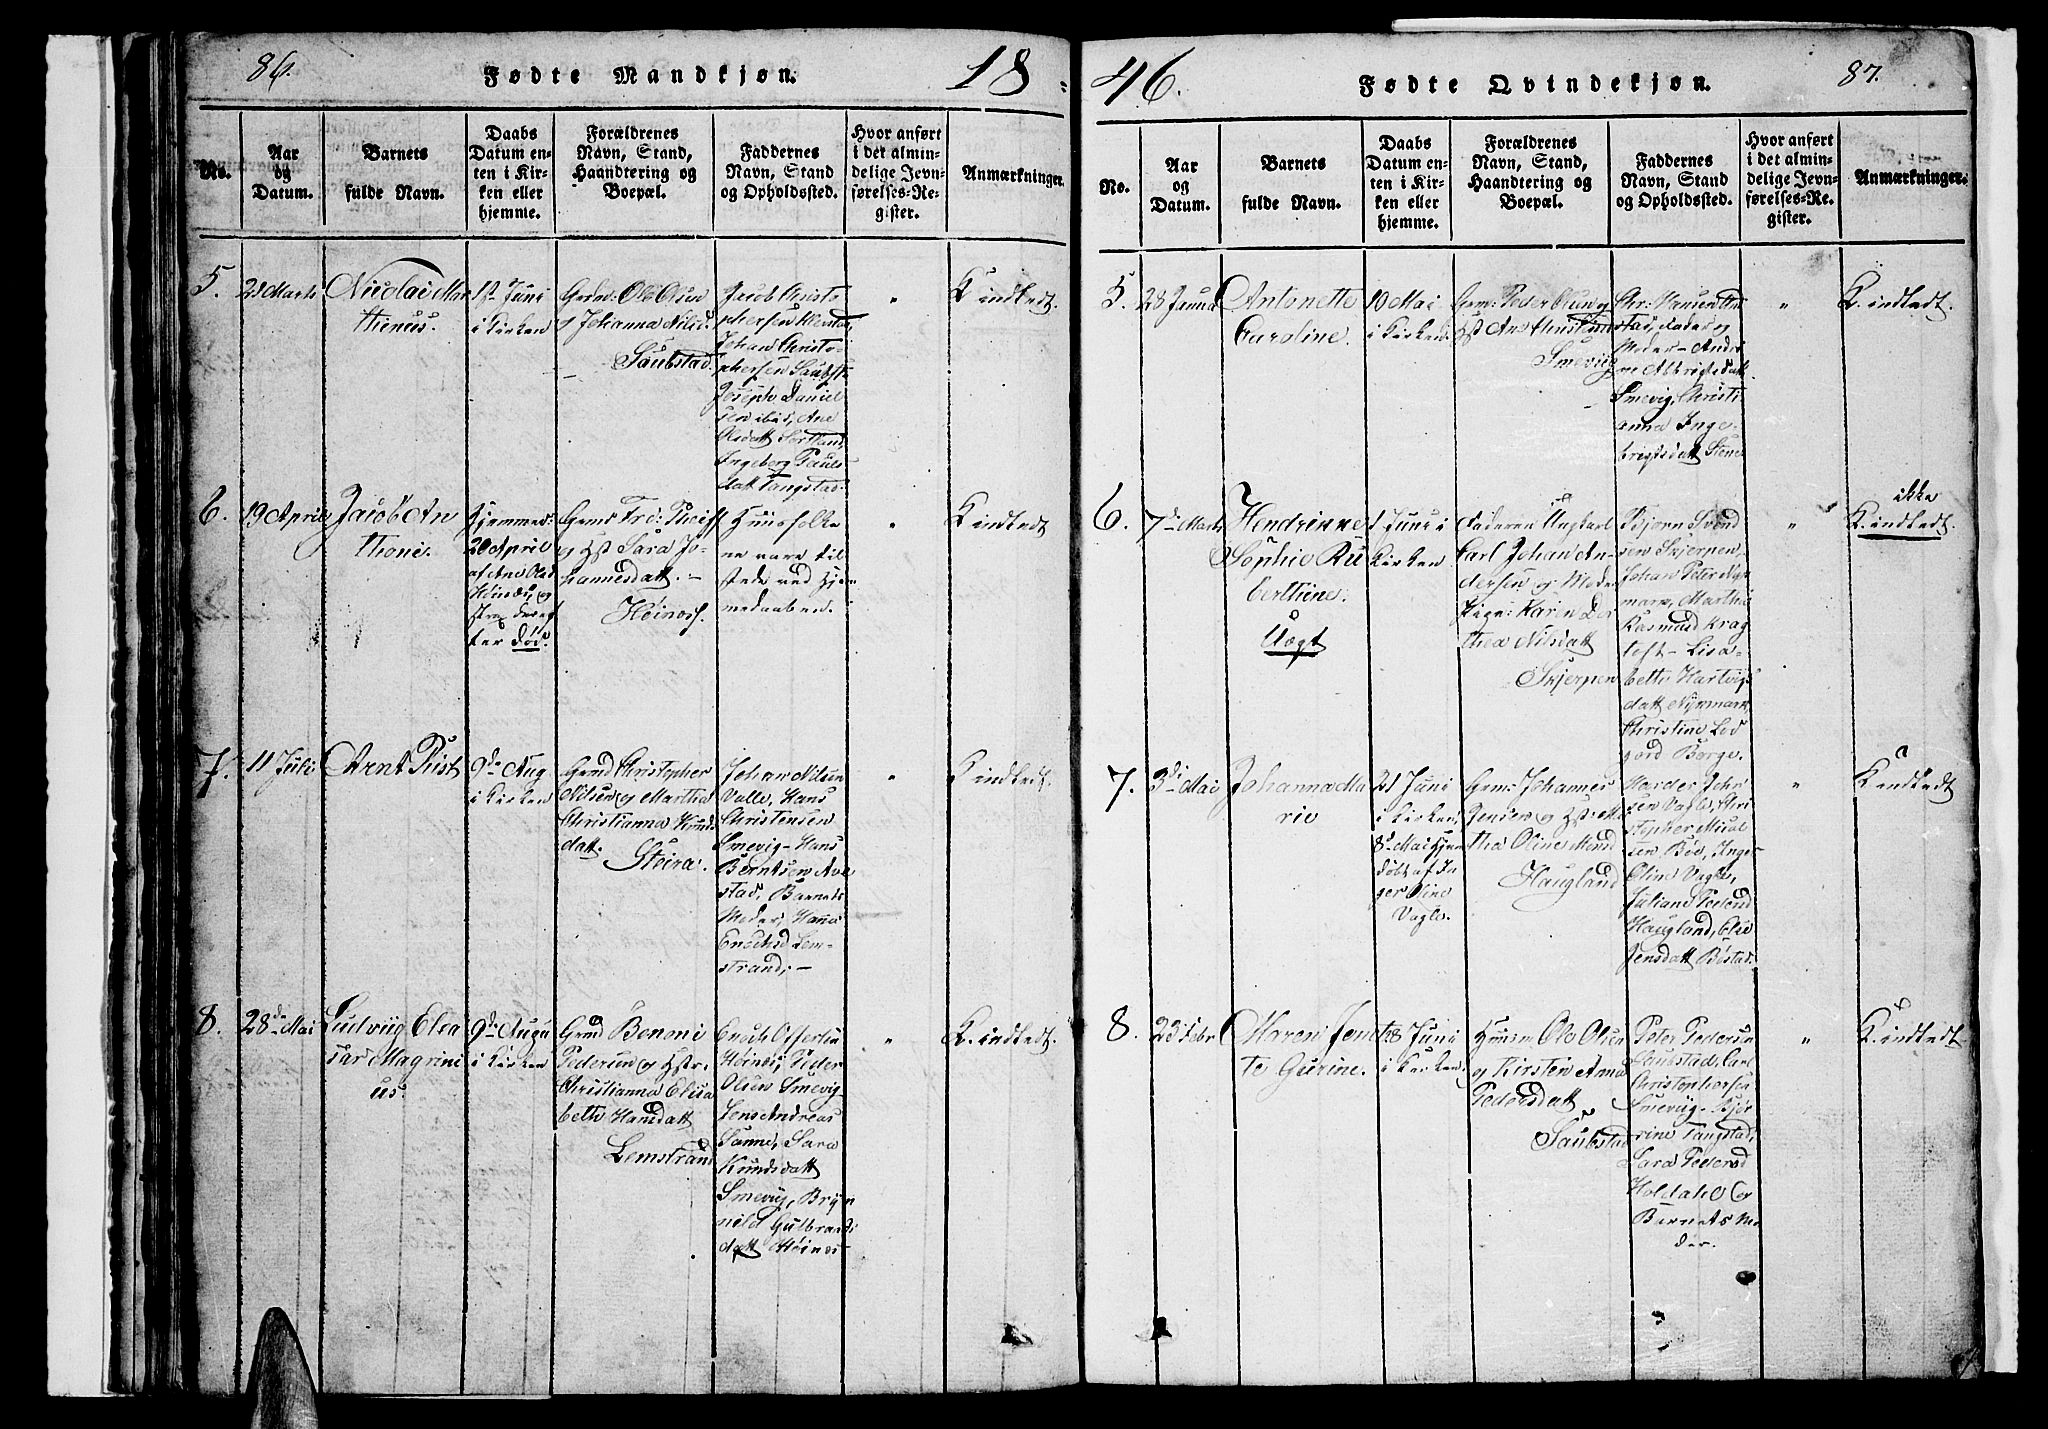 86.
Fødte Mandkjøn.
18
No.
Aar
og
Datum.
Barnets
fulde Navn.
Daabs
Datum en-
ten i Kir-
ken eller
hjemme.
Forældrenes
Navn, Stand,
Haandtering og
Boepæl.
Faddernes
Navn, Stand
og Opholdssted.
Hvor anført
i det almin-
delige Jevn-
førelses-Re-
gister.
Anmærkninger.
5.
Marts
Nicolai Mar
thenus.
1st Juni
i Kirken
Ole Olsen
Johanna Nilsd.
Saubstad.
Jacob Christo
phersen
Johan Christo
phersen Saubst.
Joseph Daniel
sen ibid, Ane
Olsdatt Sortland
Ingeborg Pauls
datt Tangstad.
"
K. indledt.
6.
19 April
Jacob An
thoni.
Hjemmed:
20 April
af Ane Olsd
Høinæs, og
strax dereft
ter død.
Sara Jo-
hannesdatt. –
Høinæss.
Huusfolke
ne vare til
stede ved Hjem
medaaben.
"
K indledt
7.
11 Juli
Arnt Rist
9de Aug
i Kirken
Grmd Christopher
Nilsen og Martha
Christianna Knuds
datt.
Steira.
Johan Nilsen
Valle, Hans
Christensen
Smevig – Hans
Berntsen Ave
stad, Barnets
Moder, Hanna
Enochsd Lem-
strand, –
"
K indledt.
8.
28de Mai
Ludvig Elea
sar Magrini
us.
9de Augu
i Kirken
Grmd Benoni
Pedersen og Hstr.
Christianna Elisa
beth Hansdatt
Lemstrand
Enoch
Høinæs, Peder
Olsen Smevig
Jens Andreas
Sanne, Sara
Knudsdatt
Smevig, Bryn
nild Gulbrands
datt Høinæs
"
K. indledt.
46.
Fødte Qvindekjøn.
87.
No.
Aar
og
Datum.
Barnets
fulde Navn.
Daabs
Datum en-
ten i Kir-
ken eller
hjemme.
Forældrenes
Navn, Stand,
Haandtering og
Boepæl.
Faddernes
Navn, Stand
og Opholdssted.
Hvor anført
i det almin-
delige Jevn-
førelses-Re-
gister.
Anmærkninger.
5.
28 Janua
Antonette
Caroline.
10 Mai
i Kirken
Grm: Peder Olsen og
Hst Ane
Smevig
Chr: Hansen
stad, Fader og
Moder – Andri
ne Albrigtsdatt
Smevig, Christi
anna Inge-
brigtsdatt Stene
"
K. indledt.
6.
7de Marts
Hendrikke
Sophie Ru
berthine.
Uægt
1 Juni i
Kirken
Faderen Ungkarl
Carl Johan An-
dersen og Moder
Pige: Karen Do
thea Nilsdatt
Skjerpen
Bjørn Svend
sen Skjerpen,
Johan Peter Nyk
mark, Martha
Rasmusd Krag
toft – Lisa-
beth Hartvigs
datt Nykmark
Christine
gord Borge.
"
ikke
K. indledt.
7.
3di Mai
Johanna Ma
rie
21 Juni
i Kirken,
8de Mai hjem
døbt af In
ger Oline
Vagle.
Grm: Johannes
Jensen og Hst: Ma
tha Oline
Haugland
Harder John
sen Vagle, Chri
stopher
sen Bøe, Inger
Oline Vagle,
Juliane Pedersd
Haugland, Elen
Jensdatt Bøstad.
"
K indledt
8.
23 Febr
Maren Jenet
te Gurine.
28 Juni
i Kirken
Huusm Ole Olsen
og Kirsten Anna
Pedersdatt
Saubstad
Peter Pedersen
Saubstad, Carl
Christophersen
Smevig – Bjør
rine Tangstad,
Sara Pedersd
Holdahl og
Barnets Mo
der.
"
K. indledt